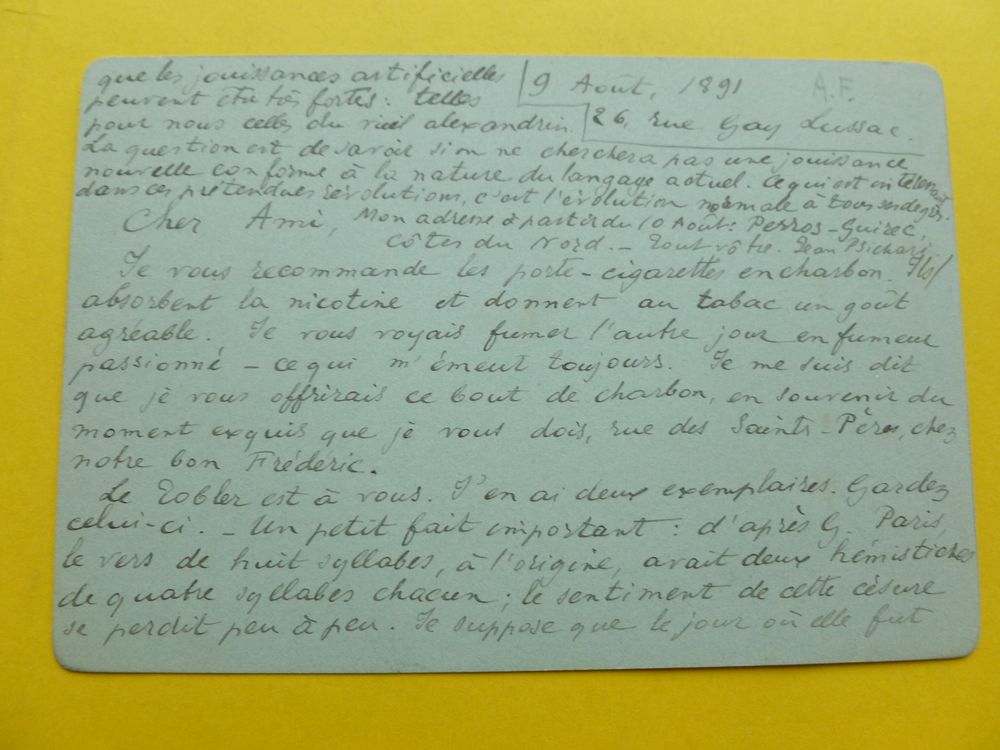 9 Août, 1891
A.F.
26, rue Gay Lussac.
que les jouissances artificielles
peuvent être très fortes : telles
pour nous celles du vieil alexandrin.
La question est de savoir si on ne cherchera pas une jouissance
nouvelle conforme à la nature du langage actuel. Ce qui est intéressant
dans ces prétendues révolutions, c'est l'évolution normale à tous ses degrés.
Mon adresse à partir du 10 Août : Perros-Guirec,
Côtes du Nord. – Tout vôtre. Jean Psichari
Cher Ami,
Je vous recommande les porte-cigarettes en charbon. Ils
absorbent la nicotine et donnent au tabac un goût
agréable. Je vous voyais fumer l'autre jour en fumeur
passionné – ce qui m'émeut toujours. Je me suis dit
que je vous offrirais ce bout de charbon, en souvenir du
moment exquis que je vous dois, rue des Saints-Pères, chez
notre bon Frédéric.
Le Tobler est à vous. J'en ai deux exemplaires. Gardez
celui-ci. – Un petit fait important : d'après G. Paris,
le vers de huit syllabes, à l'origine, avait deux hémistiches
de quatre syllabes chacun ; le sentiment de cette césure
se perdit peu à peu. Je suppose que le jour où elle fut